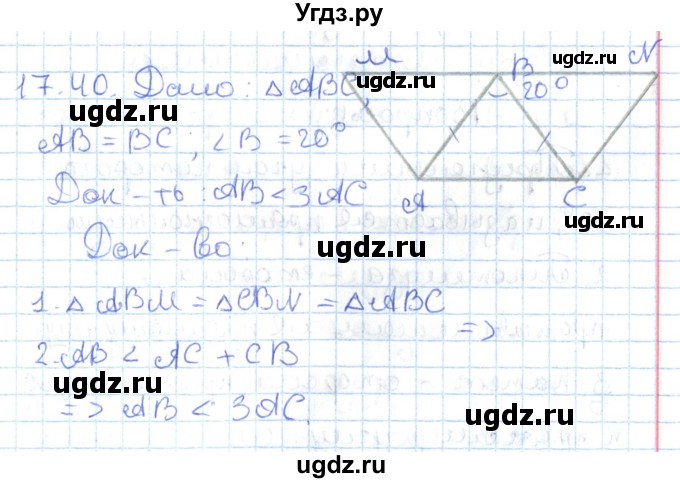 Угдз.ру
M B N
17.40. Дано: △ABC,
20°
AB = BC; ∠B = 20°
Док-ть: AB < 3AC
A C
Док-во:
1. △ABM = △CBN = △ABC
=>
2. AB < AC + CB
=> AB < 3AC.
ugdz.ru
ugdz.ru
ugdz.ru
ugdz.ru
ugdz.ru
ugdz.ru
ugdz.ru
ugdz.ru
ugdz.ru
ugdz.ru